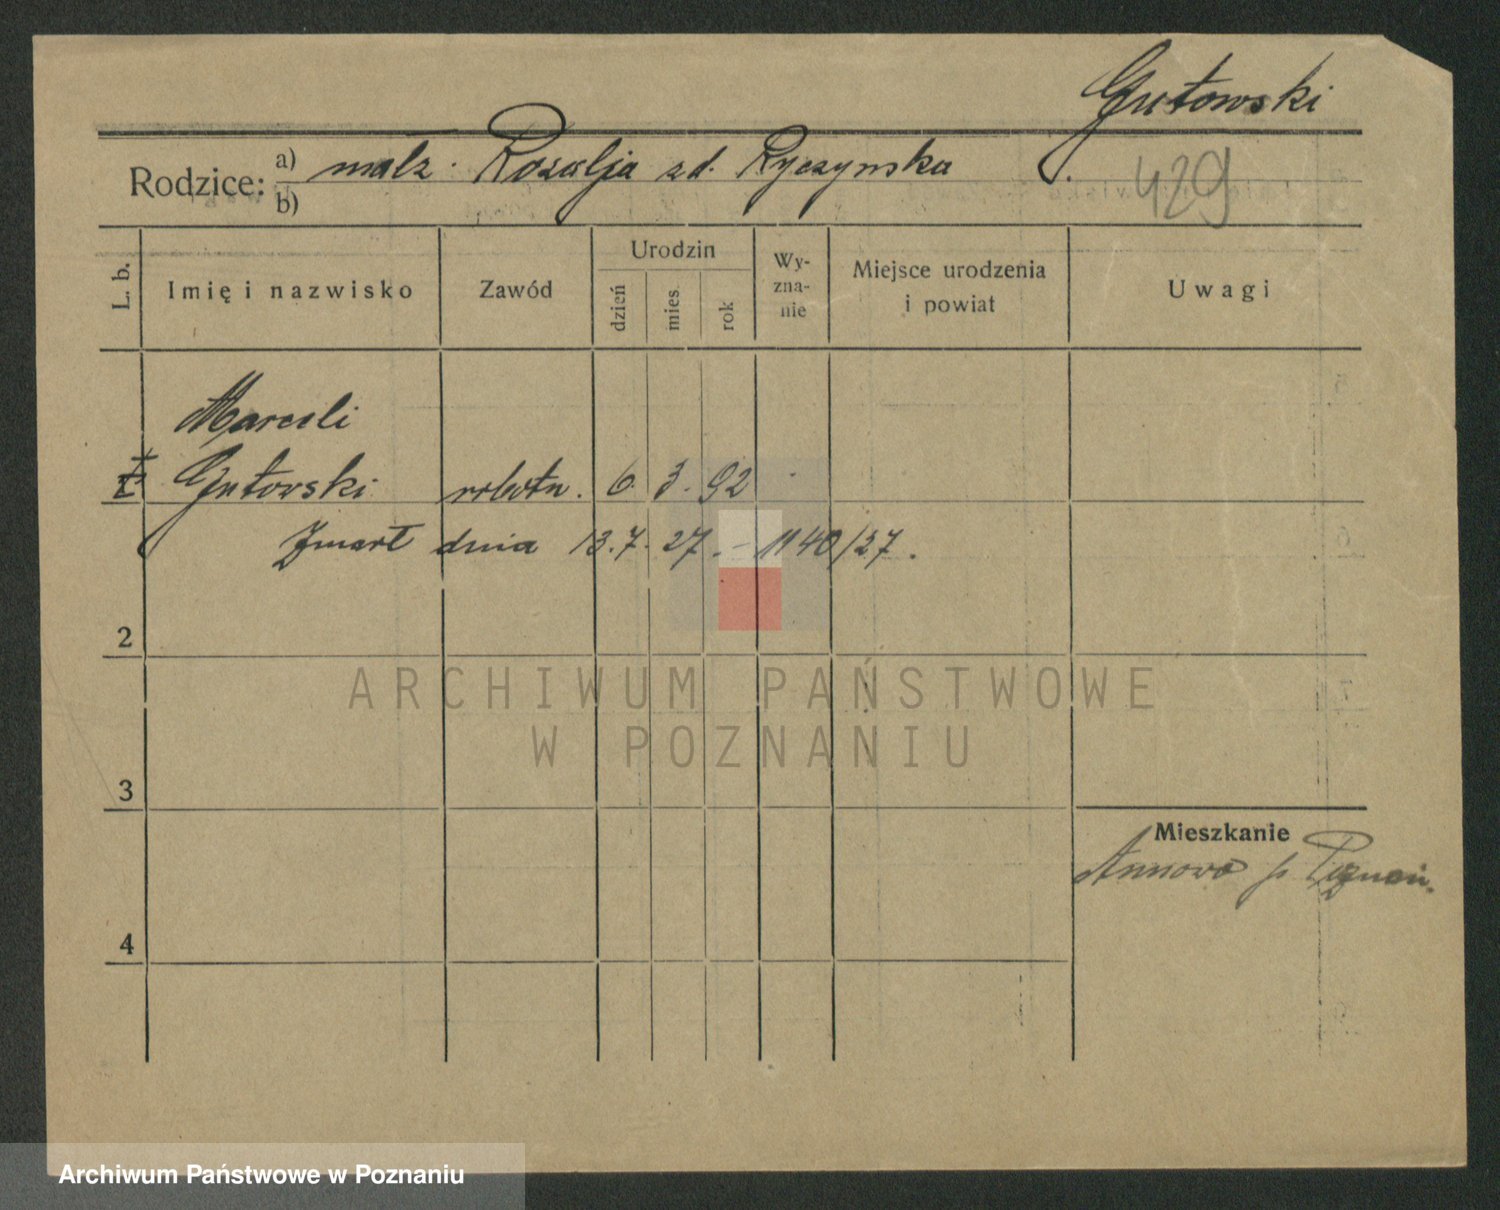 Gutowski
Rodzice: a) małż. Rozalja zd. Ryczynska
b)
429
L. b.
Imię i nazwisko
Zawód
Urodzin
dzień
mies.
rok
Wy-
zna-
nie
Miejsce urodzenia
i powiat
Uwagi
Marceli
Gutowski robotn. 6. 3. 92
Zmarł dnia 13.7.27. – 1140/27.
2
3
4
Mieszkanie
Annowo p. Poznań.
ARCHIWUM PAŃSTWOWE
W POZNANIU
Archiwum Państwowe w Poznaniu